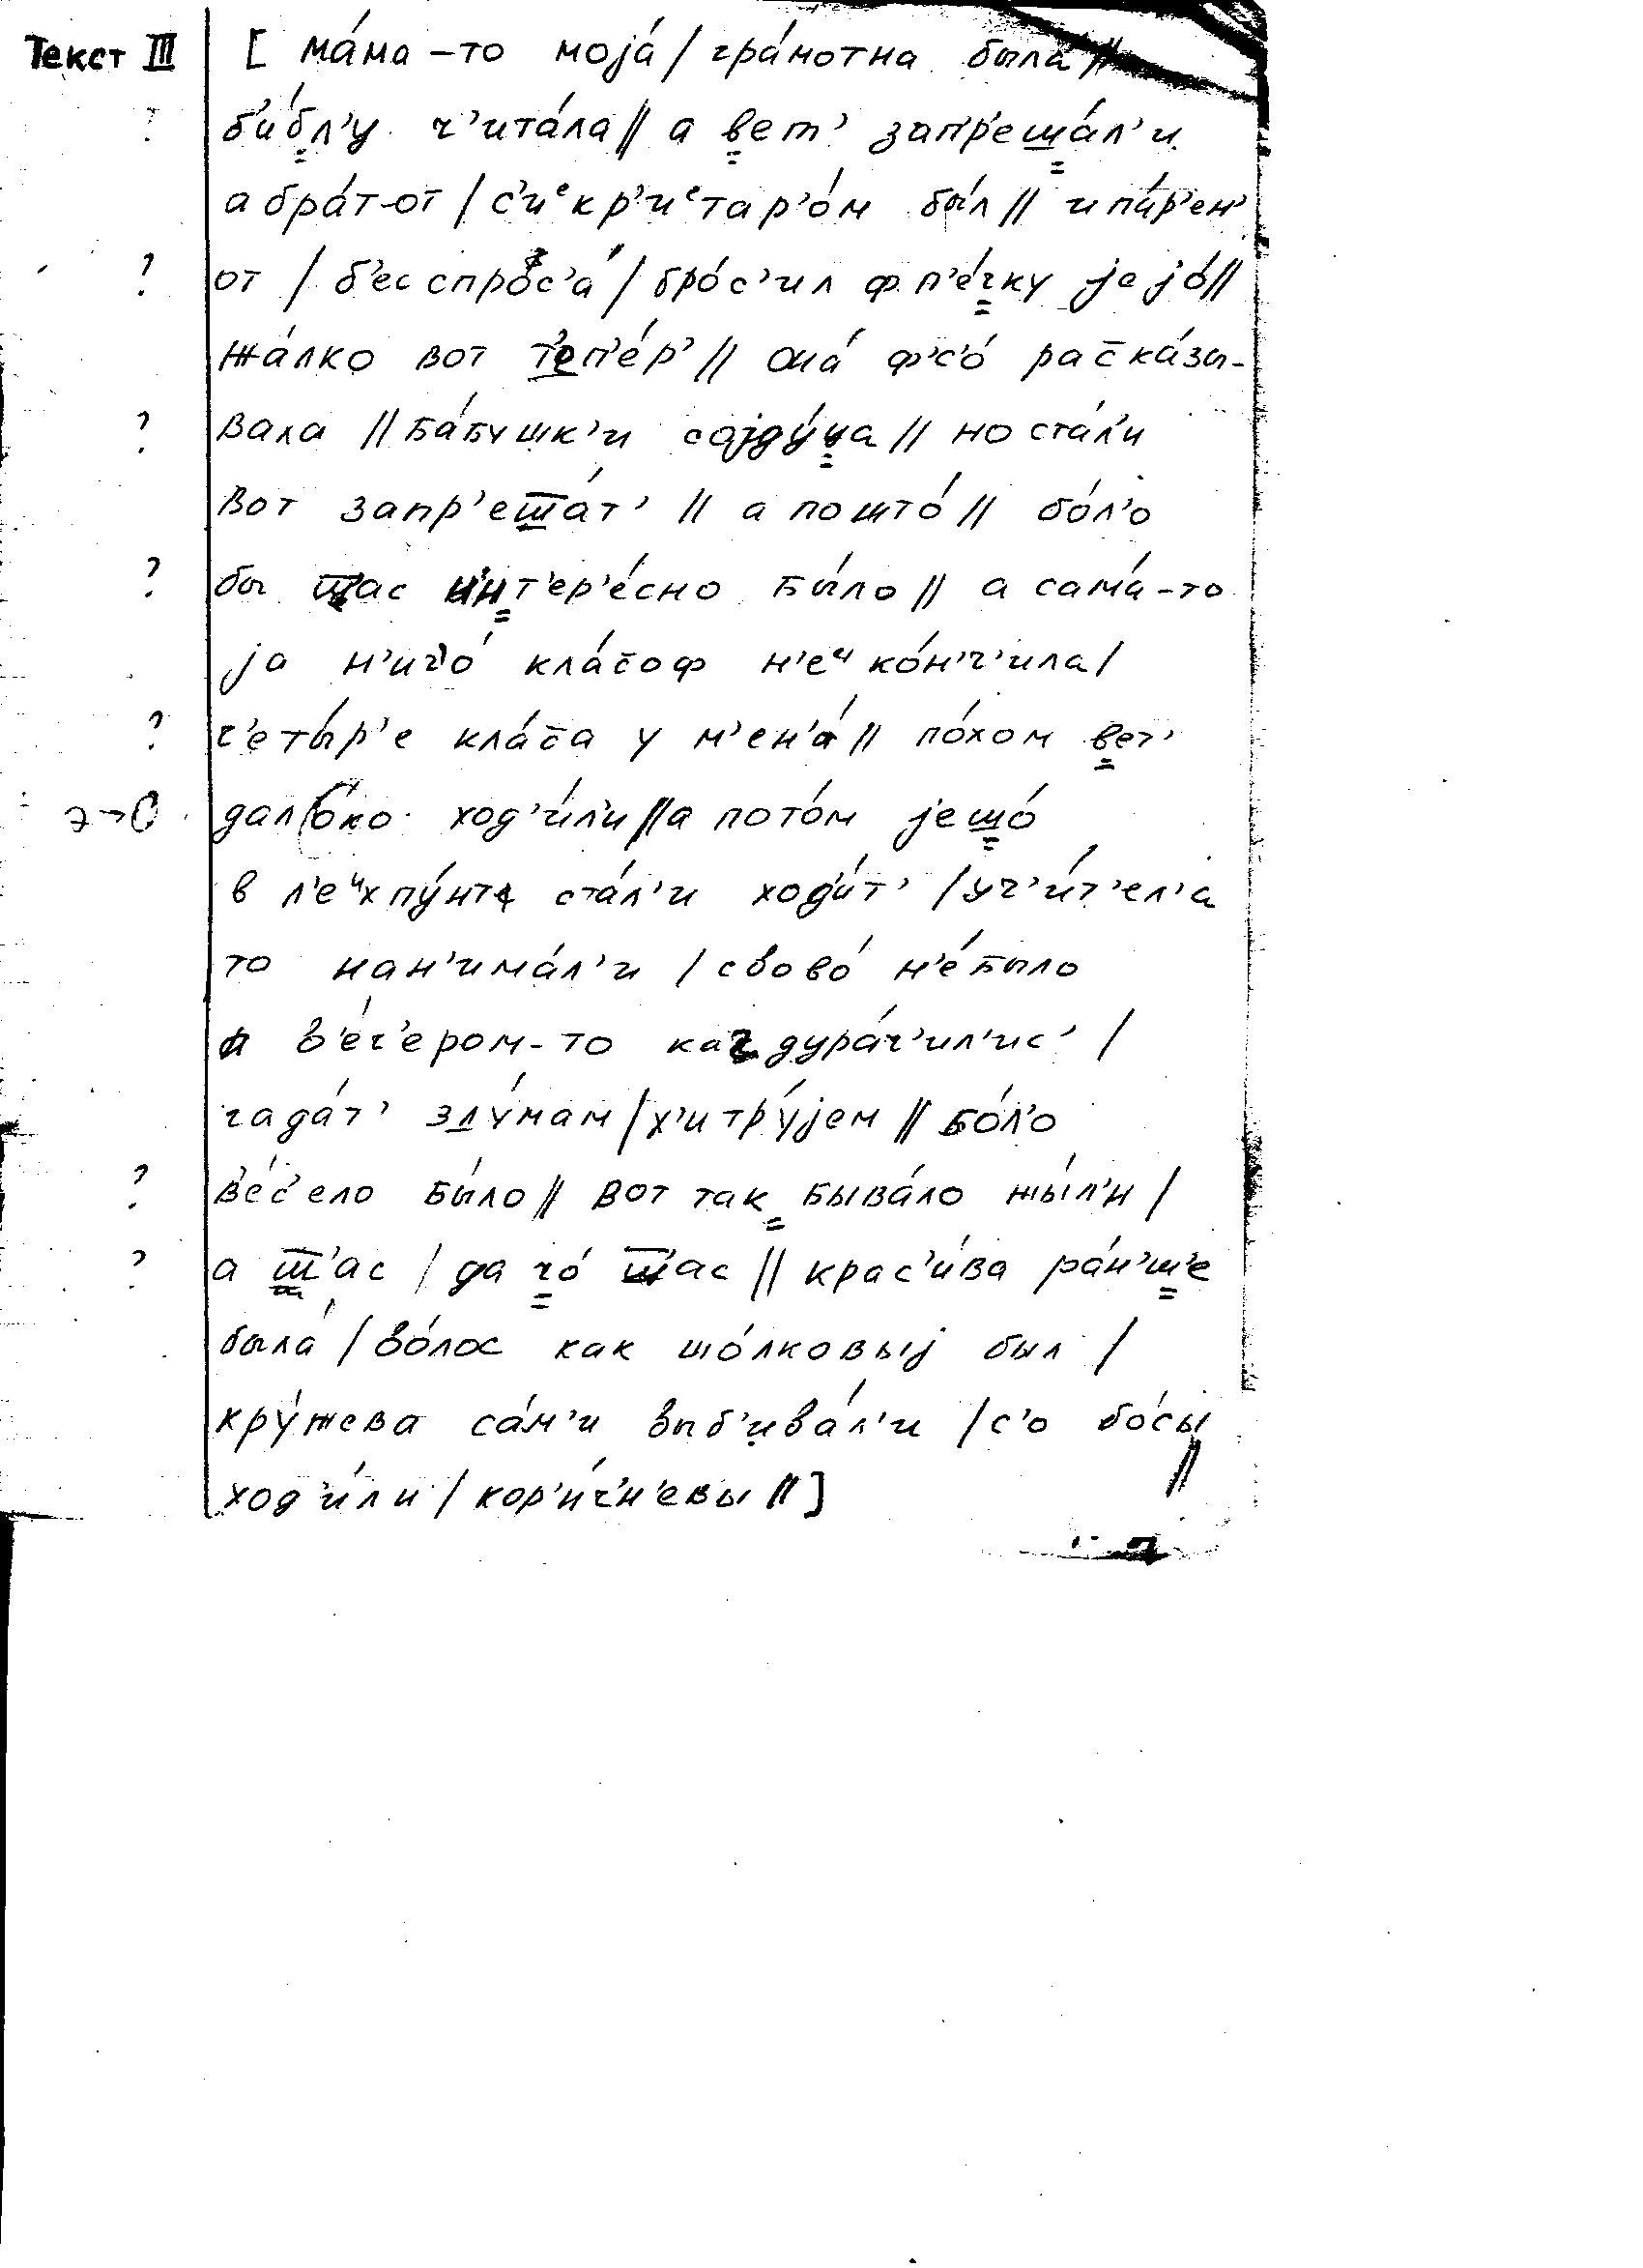 Текст III [ ма́ма-то моја́ / гра́мотна была́ //
? б'и́бл'у ч'ита́ла // а вет' запр'еша́л'и
а бра́т-от / с'иᵉкр'иᵉтар'о́м бы́л // и па́р'ен'
? от / б'ес спро́с'а́ / бро́с'ил ф п'е́чку јејо́ //
жа́лко вот т'еп'е́р' // она́ ф'с'о́ рас̄ка́зы-
? вала // ба́бушк'и сојду́ца // но ста́л'и
вот запр'еш̄а́т' // а пошто́ // бо́л'о
? бы ш̄ас инт'ер'е́сно бы́ло // а сама́-то
ја н'ич'о́ кла́с̄оф н'еᶦ ко́н'ч'ила /
? ч'еты́р'е кла́с̄а у м'ен'а́ // по́хом вет'
э→о дал'о́ко ход'и́л'и // а пото́м јешо́
в л'еᶦхпу́нта ста́л'и ход'и́т' / уч'и́т'ел'а
то нан'има́л'и / свово́ н'е́ было
а в'е́ч'ером-то каг дура́ч'ил'ис' /
гада́т' зду́мам / х'итру́јем // бо́л'о
? в'е́с'ело бы́ло // вот так быва́ло жы́л'и /
? а ш̄'ас / да чо́ ш̄'ас // крас'и́ва ра́н'ш'е
была́ / во́лос как шо́лковыј был /
кру́жева са́м'и выб'ива́л'и / с'о бо́сы
ход'и́ли / кор'и́ч'н'евы // ] //